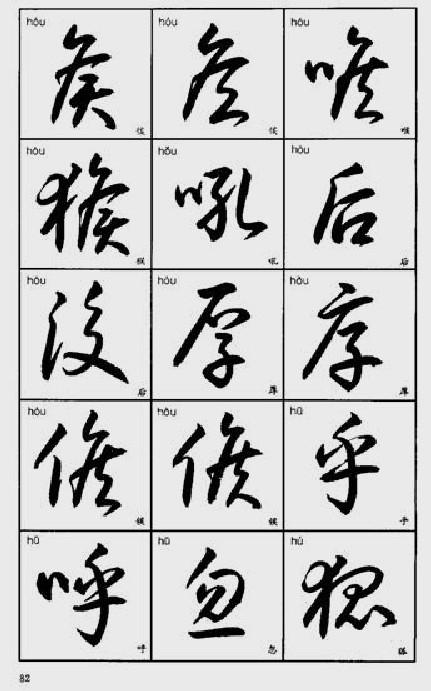 hóu hóu hóu
侯 侯 喉
侯 侯 喉
hóu hǒu hòu
猴 吼 后
猴 吼 后
hòu hòu hòu
後 厚 厚
后 厚 厚
hòu hòu hū
候 候 乎
候 候 乎
hū hū hú
呼 忽 狐
呼 忽 狐
82